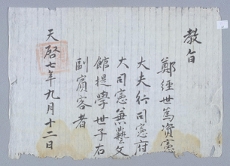 教旨
鄭經世爲資憲
大夫行司憲府
大司憲兼藝文
館提學世子右
副賓客者
天啓七年九月十二日